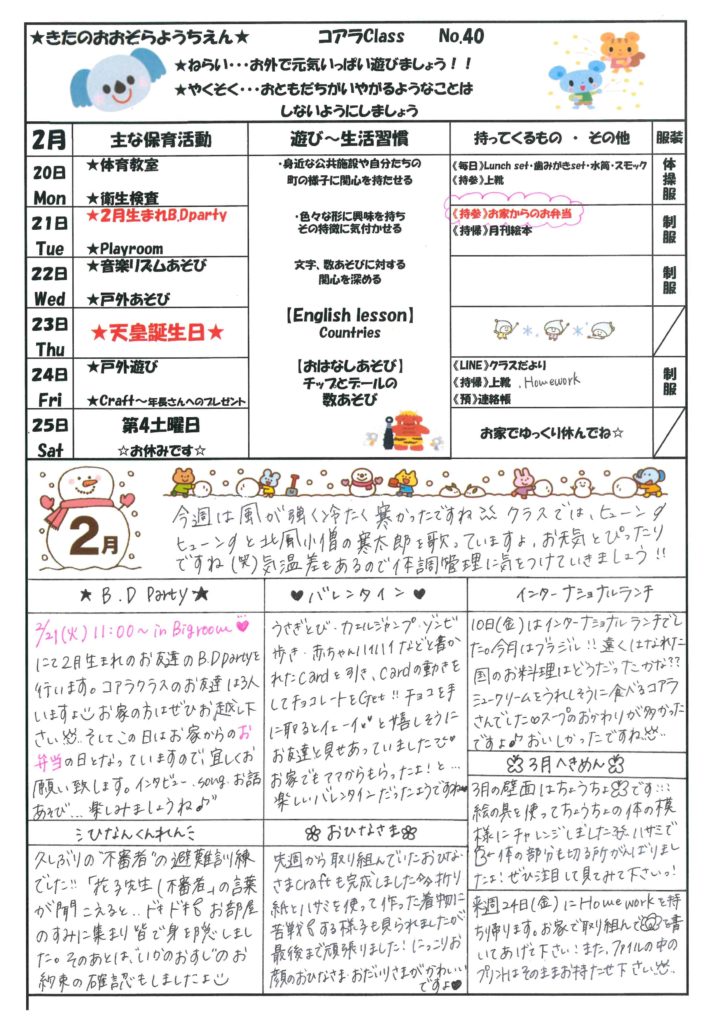 ★きたのおおぞらようちえん★ コアラClass No.40
★ねらい・・・お外で元気いっぱい遊びましょう！！
★やくそく・・・おともだちがいやがるようなことは
しないようにしましょう
2月 主な保育活動 遊び～生活習慣 持ってくるもの ・ その他 服装
20日 Mon
★体育教室
★衛生検査
・身近な公共施設や自分たちの
町の様子に関心を持たせる
《毎日》Lunch set・歯みがきset・水筒・スモック
《持参》上靴
体操服
21日 Tue
★2月生まれB.Dparty
★Playroom
・色々な形に興味を持ち
その特徴に気付かせる
《持参》お家からのお弁当
《持帰》月刊絵本
制服
22日 Wed
★音楽リズムあそび
★戸外あそび
文字、数あそびに対する
関心を深める
制服
23日 Thu
★天皇誕生日★
【English lesson】
Countries
24日 Fri
★戸外遊び
★Craft～年長さんへのプレゼント
【おはなしあそび】
チップとデールの
数あそび
《LINE》クラスだより
《持帰》上靴 .Homework
《預》連絡帳
制服
25日 Sat
第4土曜日
☆お休みです☆
お家でゆっくり休んでね☆
2月
今週は風が強く冷たく寒かったですね クラスでは、ヒューンタ
ヒューンタと北風小僧の寒太郎を歌っていますよ。お天気とぴったり
ですね(笑)気温差もあるので体調管理に気をつけていきましょう!!
★ B.D Party ★
2/21(火) 11:00～ in Bigroom♥
にて2月生まれのお友達のB.Dpartyを
行います。コアラクラスのお友達は3人
いますよ お家の方はぜひお越し下
さい。そしてこの日はお家からのお
弁当の日となっていますので、宜しくお
願い致します。インタビュー、song、お話
あそび... 楽しみましょうね♪
♥ バレンタイン ♥
うさぎとび・カエルジャンプ・ゾンビ
歩き・赤ちゃんハイハイなどと書か
れたCardを引き、Cardの動きを
してチョコレートをGet!! チョコを手
に取るとイェーイ♥♥と嬉しそうに
お友達と見せあっていました♡
お家でもママからもらったよ！と...
楽しいバレンタインだったようですね♥
インターナショナルランチ
10日(金)はインターナショナルランチでし
た。今月はブラジル!! 遠くはなれた
国のお料理はどうだったかな??
ミュークリームをうれしそうに食べるコアラ
さんでした♡スープのおかわりが多かった
ですよ♪おいしかったですね
3月へきめん
3月の壁面はちょうちょです
絵の具を使ってちょうちょの体の模
様にチャレンジしました ハサミで
体の部分も切る所がんばりまし
たよ！ぜひ注目して見てみて下さいっ！
来週24日(金)にHomeworkを持
ち帰ります。お家で取り組んで を書
いてあげて下さい！また、ファイルの中の
プリントはそのままお持たせ下さい
ひなんくんれん
久しぶりの"不審者"の避難訓練
でした!! 「花子先生(不審者)」の言葉
が聞こえると..ドキドキ お部屋
のすみに集まり皆で身を隠しまし
た。そのあとは、"いかのおすし"のお
約束の確認もしましたよ
おひなさま
先週から取り組んでいたおひな
さまcraftも完成しました 折り
紙とハサミを使って作った着物に
苦戦する様子も見られましたが
最後まで頑張りました！にっこりお
顔のおひなさま・おだいりさまがかわいい
ですよ♥